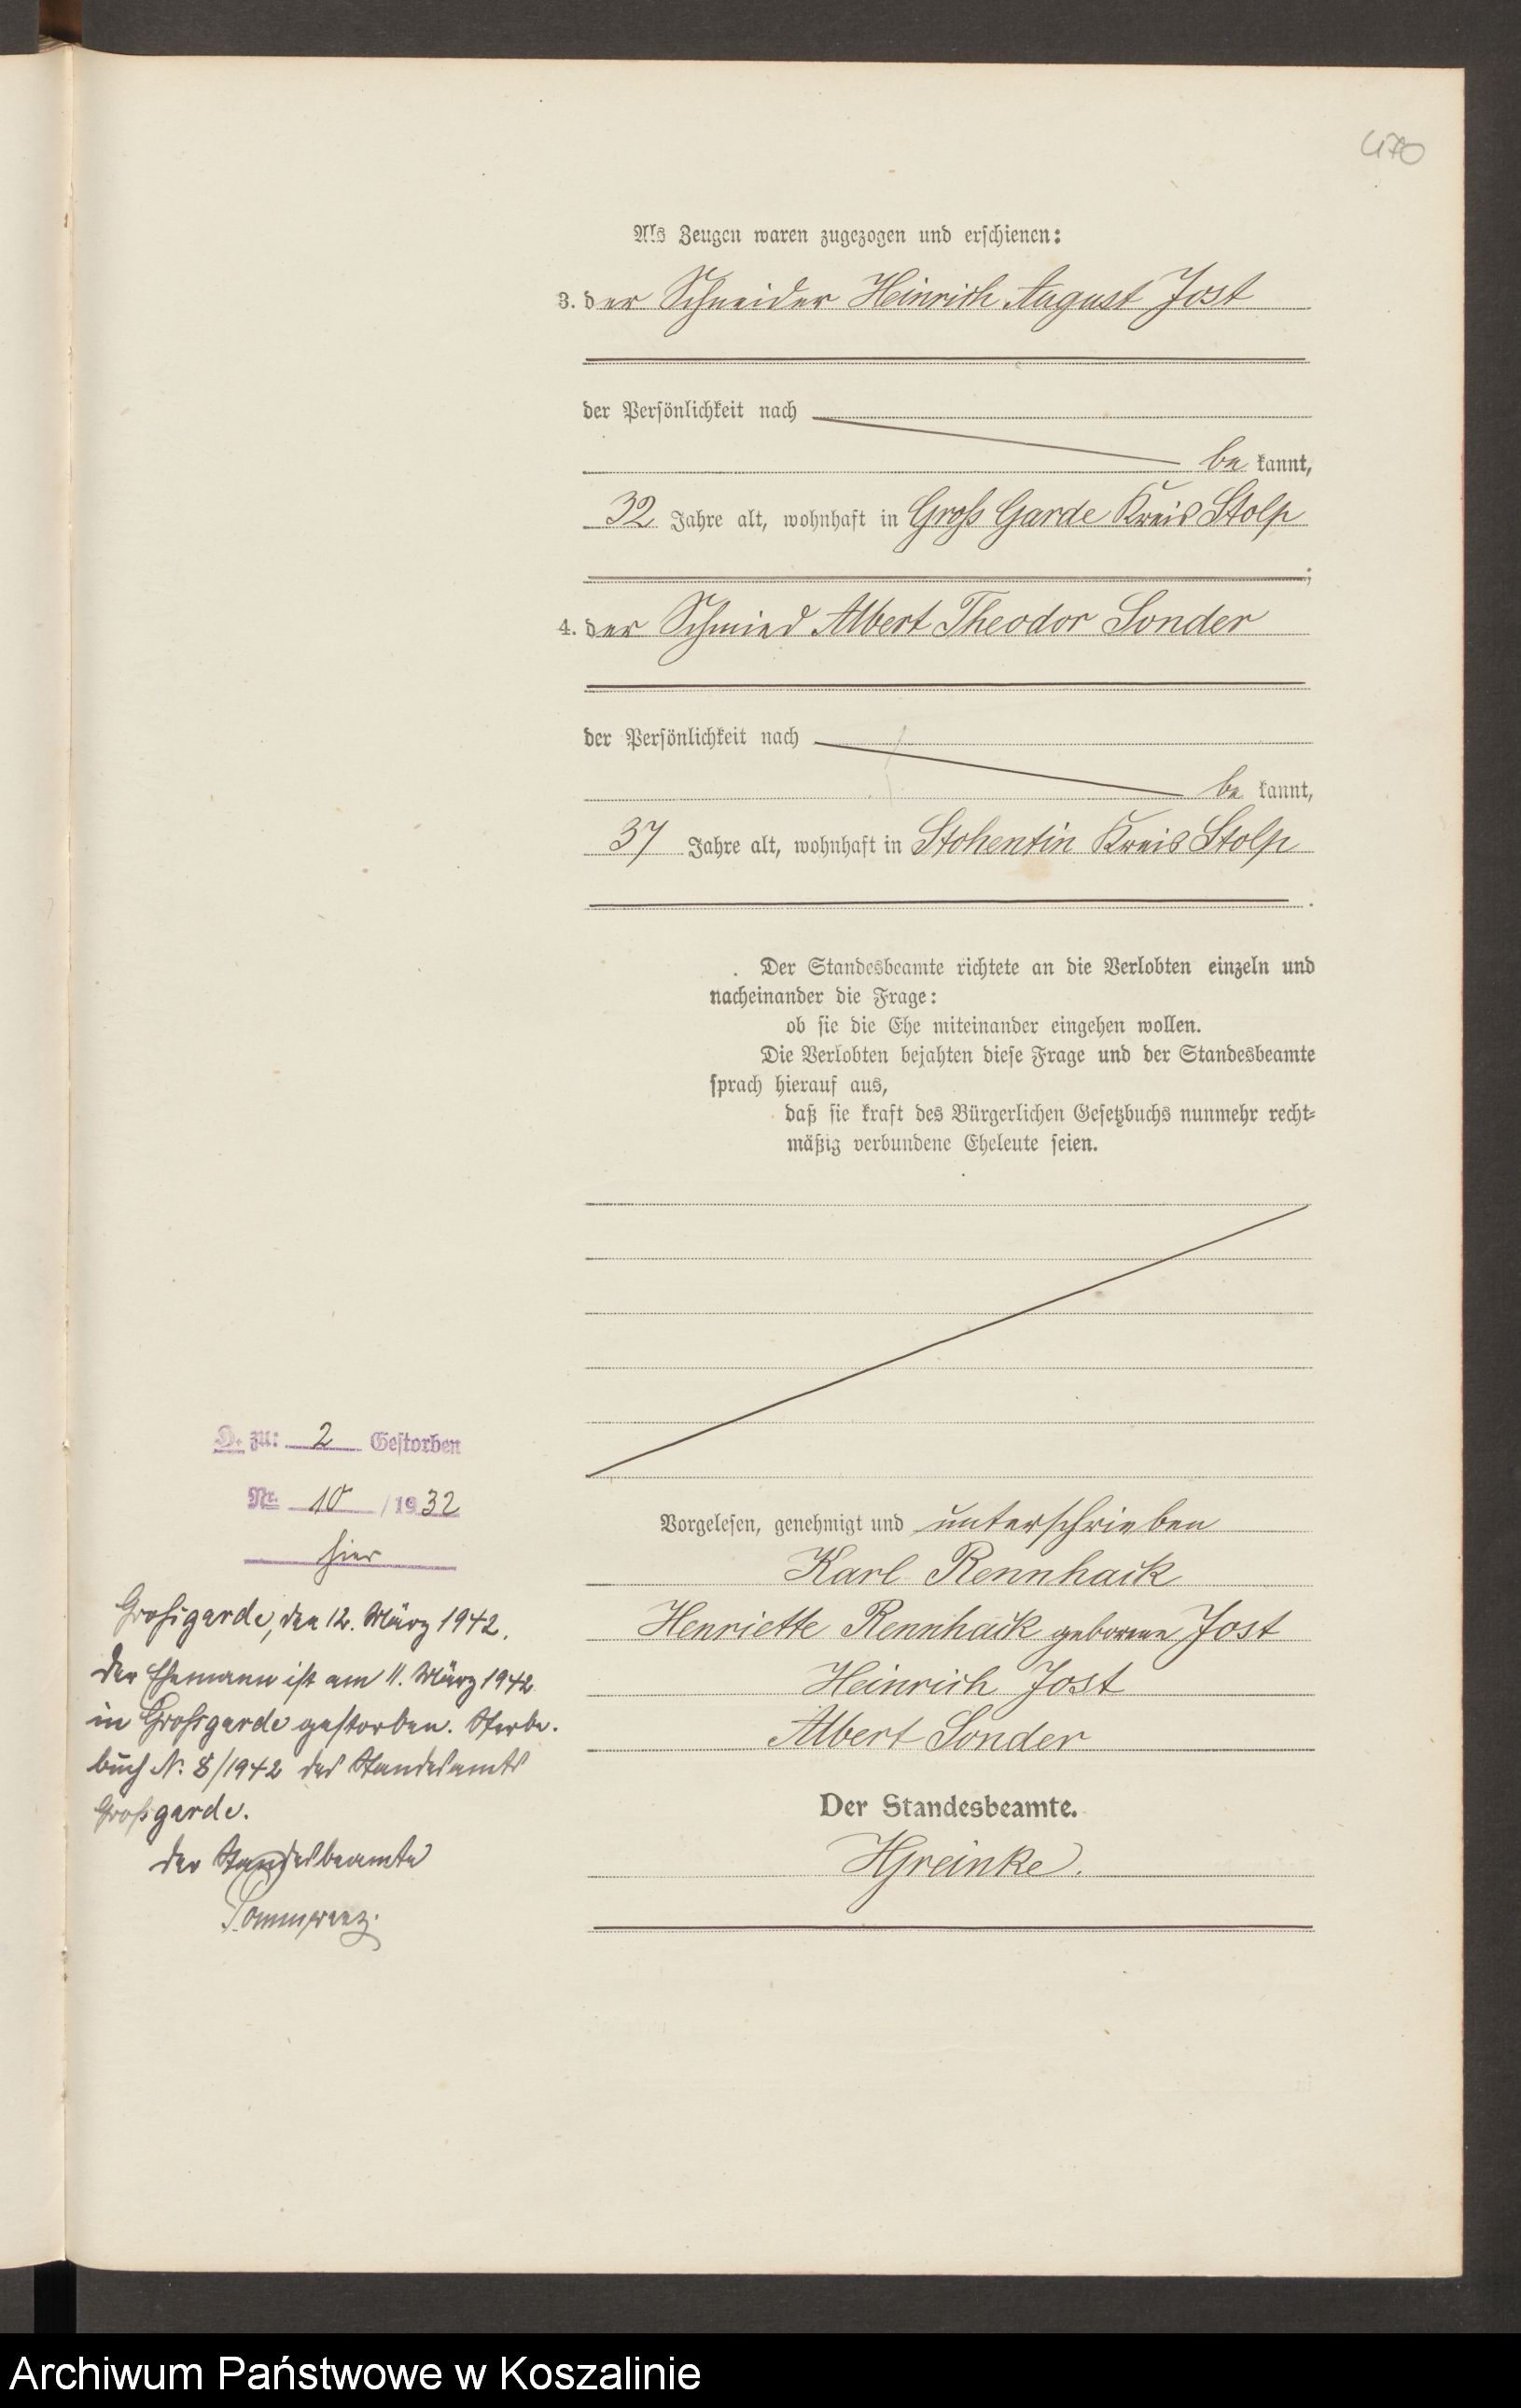 470
Als Zeugen waren zugezogen und erschienen:
3. der Schneider Heinrich August Jost
der Persönlichkeit nach
be kannt,
32 Jahre alt, wohnhaft in Groß Garde Kreis Stolp
;
4. der Schmied Albert Theodor Sonder
der Persönlichkeit nach
be kannt,
37 Jahre alt, wohnhaft in Stohentin Kreis Stolp
.
Der Standesbeamte richtete an die Verlobten einzeln und
nacheinander die Frage:
ob sie die Ehe miteinander eingehen wollen.
Die Verlobten bejahten diese Frage und der Standesbeamte
sprach hierauf aus,
daß sie kraft des Bürgerlichen Gesetzbuchs nunmehr recht-
mäßig verbundene Eheleute seien.
Vorgelesen, genehmigt und unterschrieben
Karl Rennhack
Henriette Rennhack geborene Jost
Heinrich Jost
Albert Sonder
Der Standesbeamte.
HGreinke.
D. zu: 2 Gestorben
Nr. 10 / 1932
hier
Großgarde, den 12. März 1942.
Der Ehemann ist am 11. März 1942
in Großgarde gestorben. Sterbe-
buch Nr. 8/1942 des Standesamts
Großgarde.
Der Standesbeamte
Archiwum Państwowe w Koszalinie